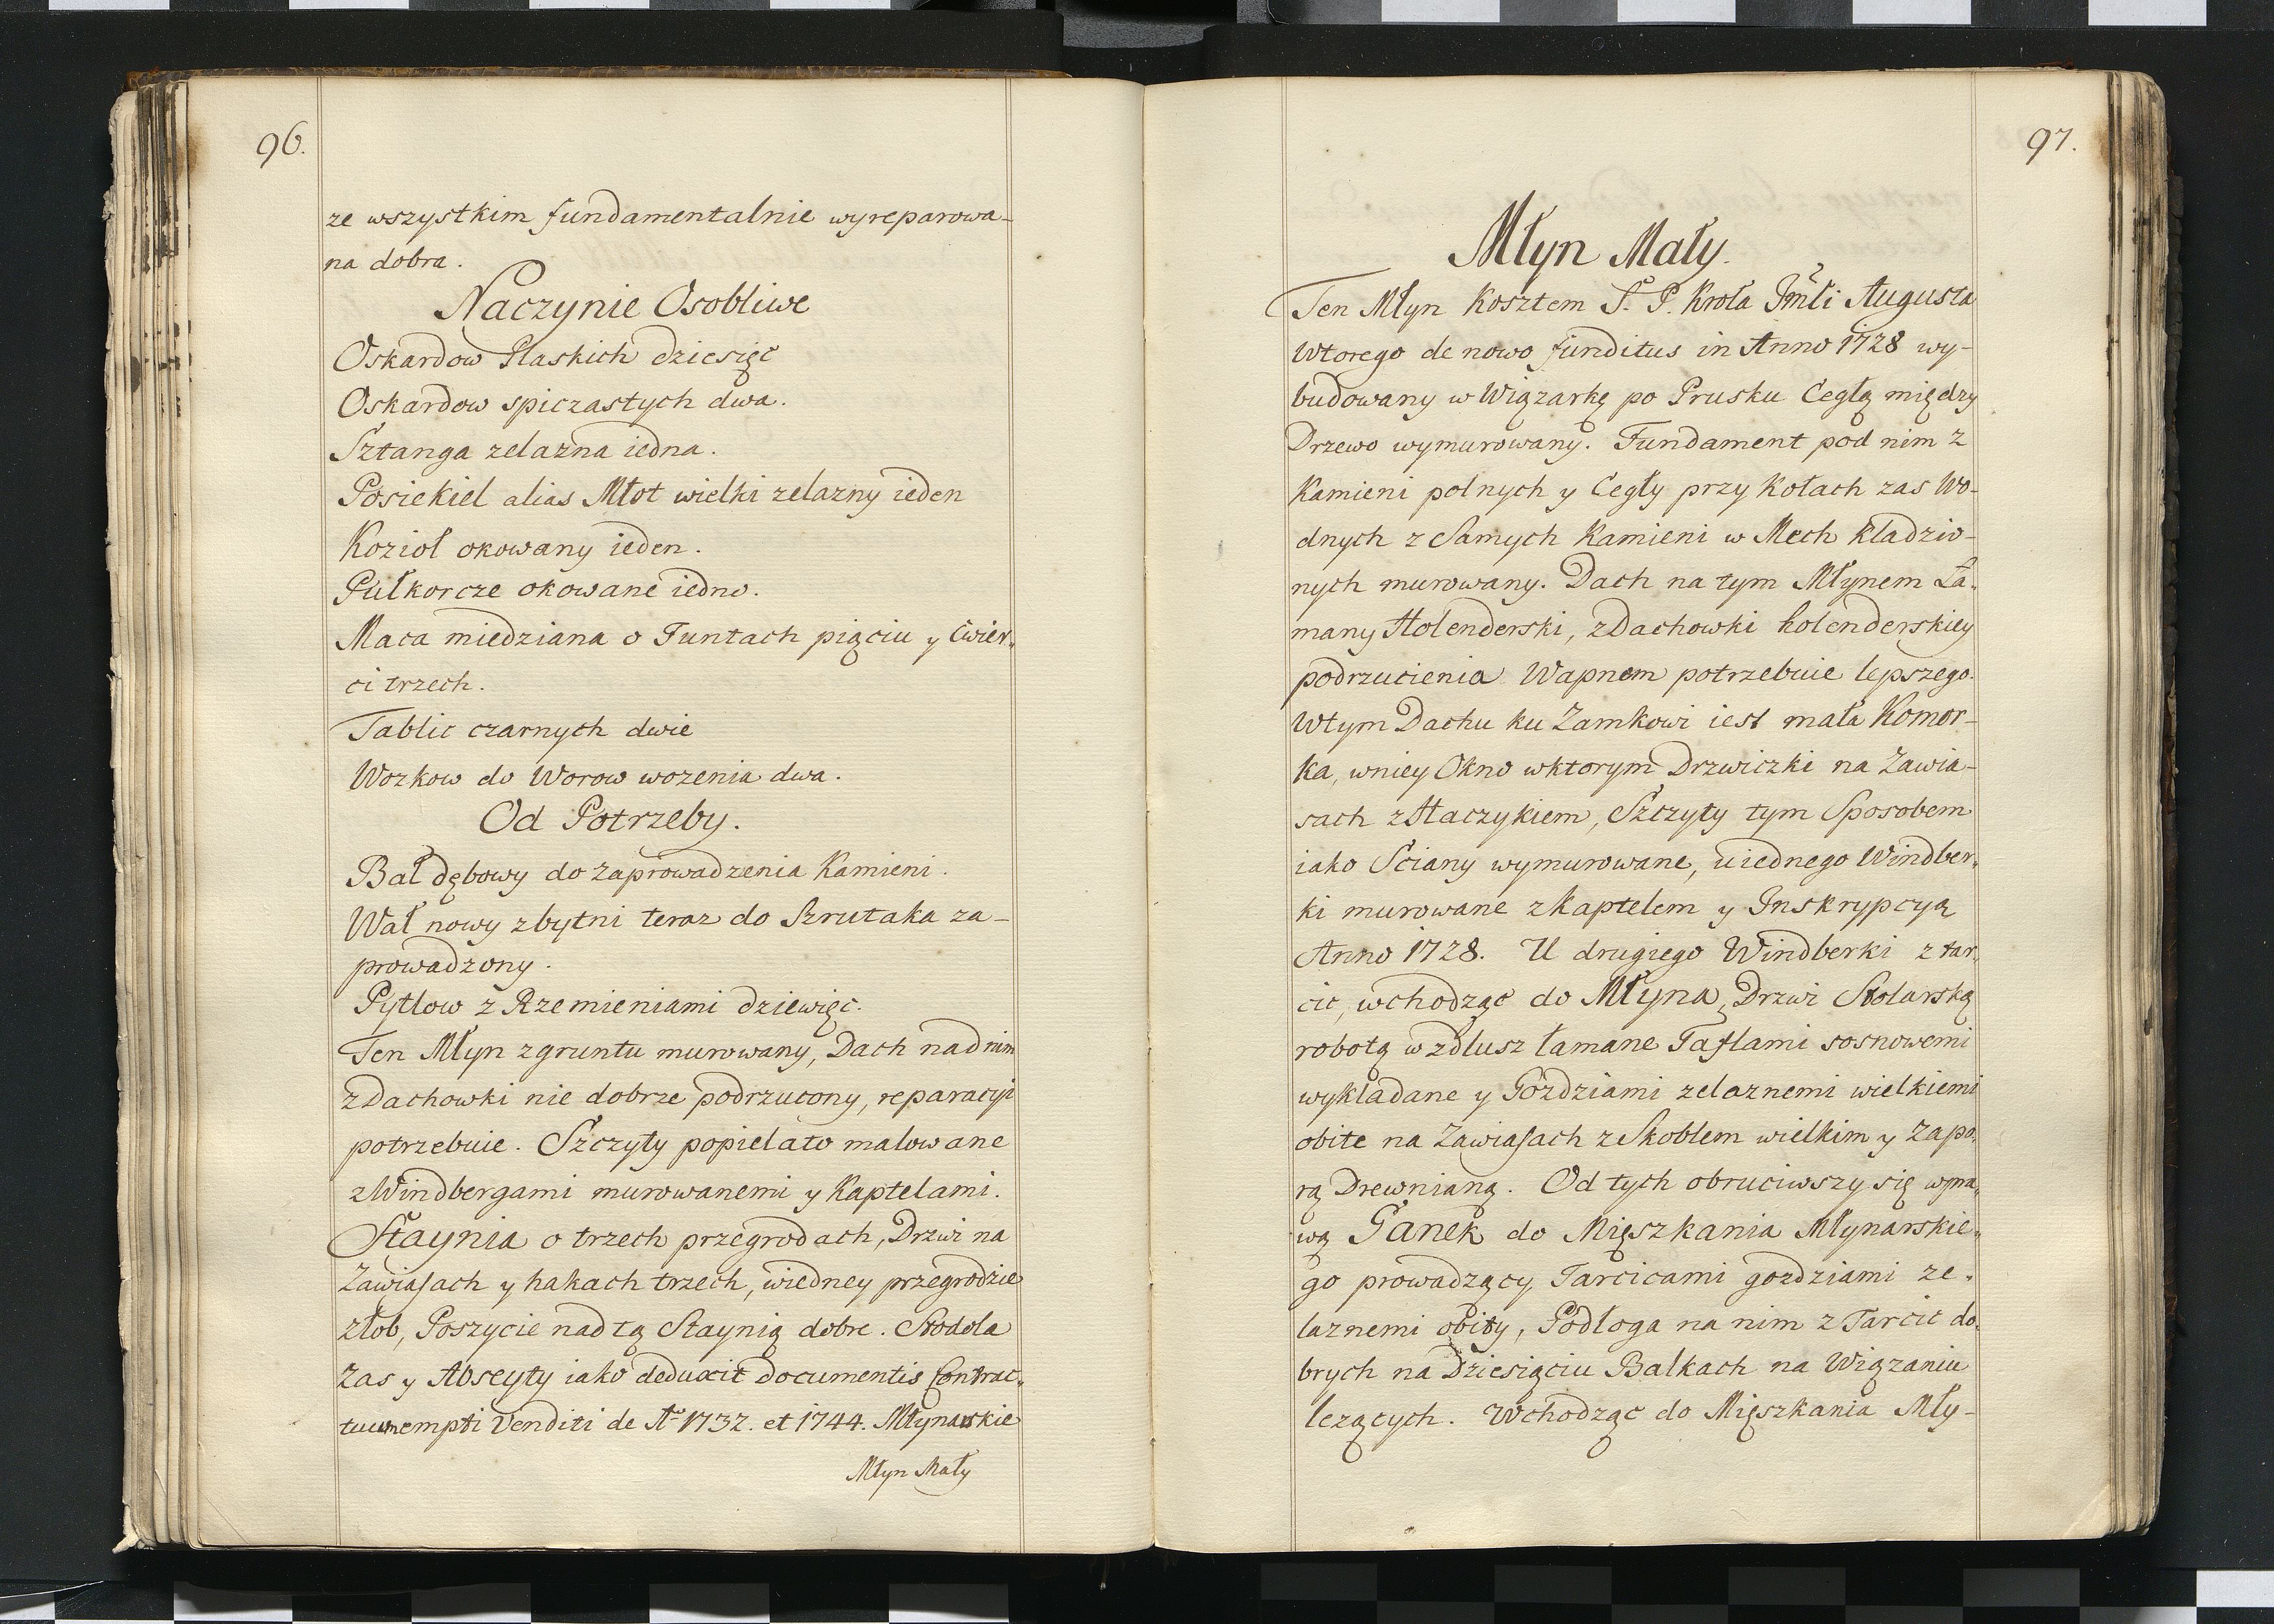 96.
ze wszystkim fundamentalnie wyreparowa-
na dobra.
Naczynie Osobliwe
Oskardow Płaskich dziesięć
Oskardow spiczastych dwa.
Sztanga zelazna iedna.
Posiekiel alias Młot wielki zelazny ieden
Kozioł okowany ieden.
Pułkorcze okowane iedno.
Maca miedziana o Funtach pięciu y Cwier-
ci trzech.
Tablic czarnych dwie
Wozkow do Worow wozenia dwa.
Od Potrzeby.
Bal dębowy do zaprowadzenia Kamieni.
Wał nowy zbytni teraz do Szrutaka za-
prowadzony.
Pytlow z Rzemieniami dziewięć.
Ten Młyn zgruntu murowany, Dach nad nim
z Dachowki nie dobrze podrzucony, reparacyi
potrzebuie. Szczyty popielato malowane
z Windbergami murowanemi y Kaptelami.
Staynia o trzech przegrodach, Drzwi na
Zawiasach y hakach trzech, wiedney przegrodzie
złob, Poszycie nad tą Staynią dobre. Stodola
Zas y Abseyty iako deduxit documentis Contrac-
tuum empti Venditi de Ao 1732. et 1744. Młynarskie
Młyn Mały
97.
Młyn Mały.
Ten Młyn Kosztem S. P. Krola Jmści Augusta
Wtorego de novo funditus in Anno 1728 wy-
budowany w Wiązarkę po Prusku Cegłą między
Drzewo wymurowany. Fundament pod nim z
Kamieni polnych y Cegły przy Kołach zas Wo-
dnych z Samych Kamieni w Mech kladzio-
nych murowany. Dach na tym Młynem Ła-
many Holenderski, z Dachowki holenderskiey
podrzucienia Wapnem potrzebuie lepszego.
W tym Dachu ku Zamkowi iest mała Komor-
ka, wniey Okno wktorym Drzwiczki na Zawia-
sach z Haczykiem, Szczyty tym Sposobem
iako Sciany wymurowane, uiednego Windber-
ki murowane z Kaptelem y Inskrypcyą
Anno 1728. U drugiego Windberki z tar-
cic, wchodząc do Młyna, Drzwi Stolarską
robotą wzdlusz łamane Taflami sosnowemi
wykladane y Gozdziami zelaznemi wielkiemi
obite na Zawiasach z Skoblem wielkim y Zapo-
rą Drewnianą. Od tych obruciwszy się wpra-
wą Ganek do Mięszkania Młynarskie-
go prowadzący, Tarcicami gozdziami ze-
laznemi obity, Podłoga na nim z Tarcic do-
brych na Dziesięciu Balkach na Wiązaniu
lezących. Wchodząc do Mięszkania Mły-